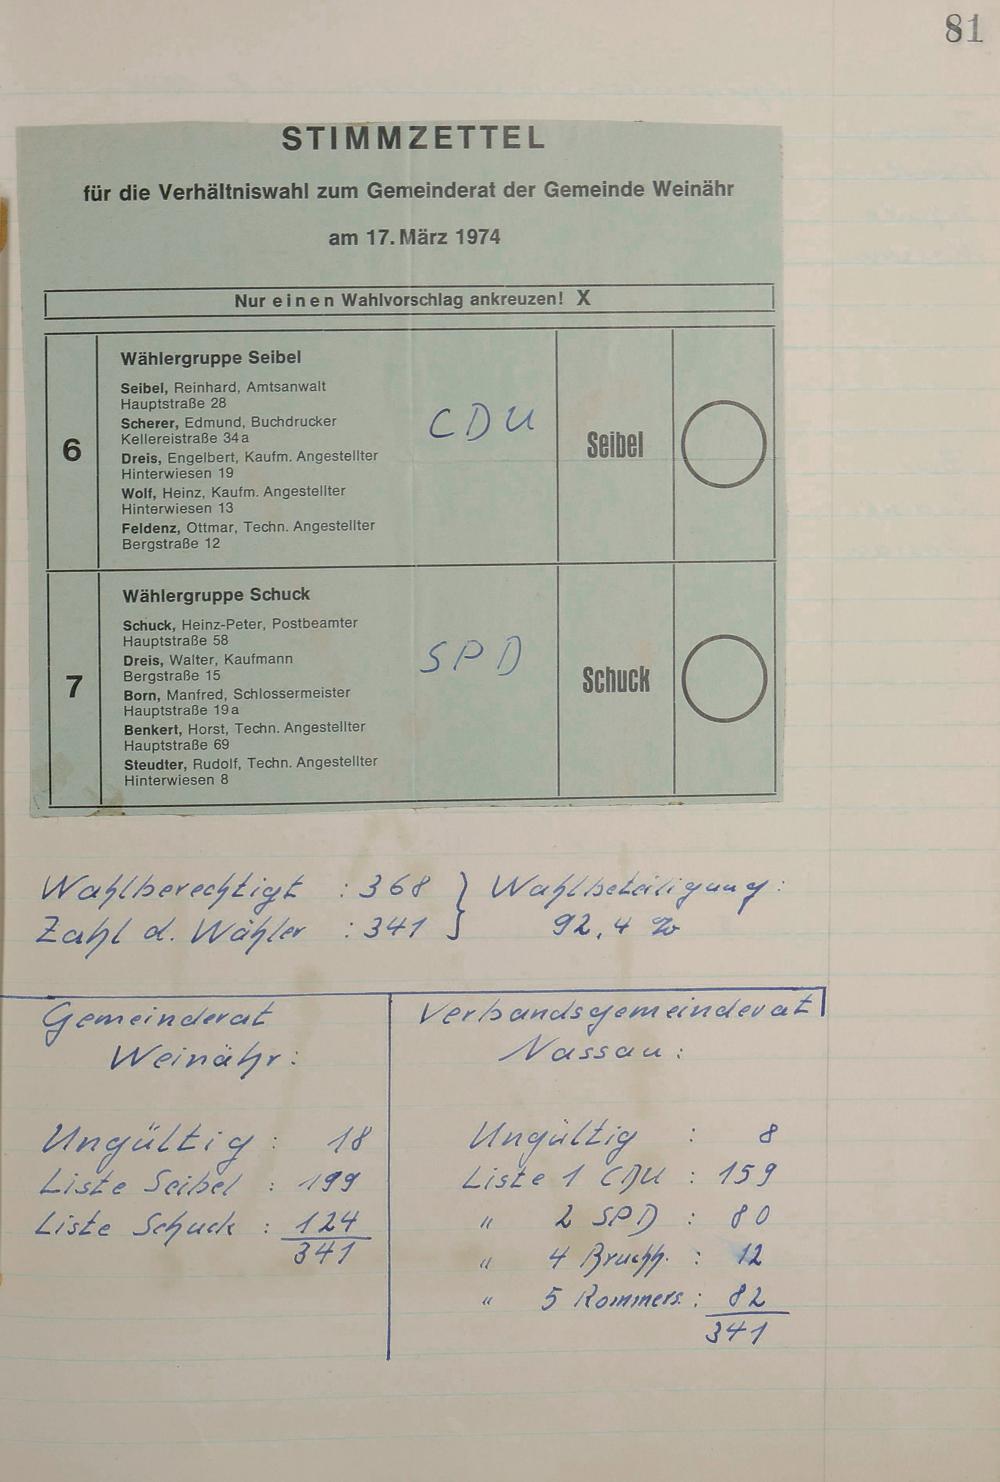 81
STIMMZETTEL
für die Verhältniswahl zum Gemeinderat der Gemeinde Weinähr
am 17. März 1974
Nur einen Wahlvorschlag ankreuzen! X
6
Wählergruppe Seibel
Seibel, Reinhard, Amtsanwalt
Hauptstraße 28
Scherer, Edmund, Buchdrucker
Kellereistraße 34a
Dreis, Engelbert, Kaufm. Angestellter
Hinterwiesen 19
Wolf, Heinz, Kaufm. Angestellter
Hinterwiesen 13
Feldenz, Ottmar, Techn. Angestellter
Bergstraße 12
CDU
Seibel
7
Wählergruppe Schuck
Schuck, Heinz-Peter, Postbeamter
Hauptstraße 58
Dreis, Walter, Kaufmann
Bergstraße 15
Born, Manfred, Schlossermeister
Hauptstraße 19a
Benkert, Horst, Techn. Angestellter
Hauptstraße 69
Steudter, Rudolf, Techn. Angestellter
Hinterwiesen 8
SPD
Schuck
Wahlberechtigt : 368 } Wahlbeteiligung:
Zahl d. Wähler : 341 92,4 %
Gemeinderat
Weinähr:
Ungültig : 18
Liste Seibel : 199
Liste Schuck : 124
341
Verbandsgemeinderat
Nassau:
Ungültig : 8
Liste 1 CDU : 159
" 2 SPD : 80
" 4 Bruchh. : 12
" 5 Kommers. : 82
341